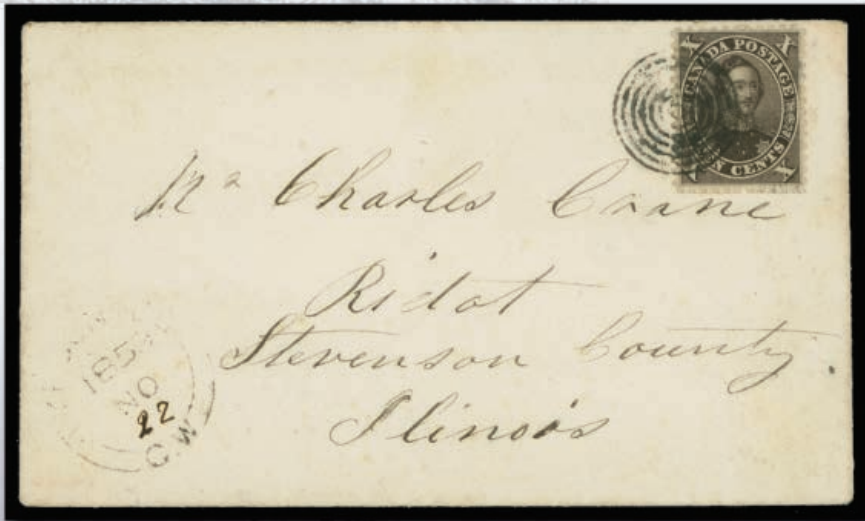 X CANADA POSTAGE X
CENTS X
Mr Charles Crane
Ridot
Stevenson County.
Ilinois
185
NO
22
C.W